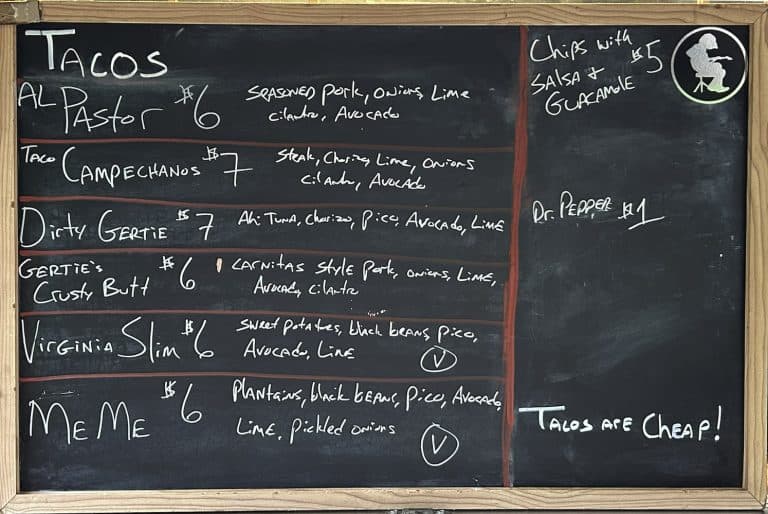 TACOS
AL PASTOR $6
SEASONED PORK, ONIONS, LIME
CILANTRO, AVOCADO
TACO CAMPECHANOS $7
STEAK, CHORIZO, LIME, ONIONS
CILANTRO, AVOCADO
Dirty GERTIE $7
AHI TUNA, CHORIZO, PICO, AVOCADO, LIME
GERTIE'S
Crusty Butt $6
CARNITAS STYLE PORK, ONIONS, LIME,
AVOCADO, CILANTRO
VIRGINIA Slim $6
SWEET POTATOES, black beans, PICO,
AVOCADO, LIME
V
ME ME $6
PLANTAINS, black BEANS, PICO, AVOCADO,
LIME, Pickled ONIONS
V
CHIPS WITH
SALSA + $5
GUACAMOLE
Dr. PEPPER $1
TACOS ARE CHEAP!